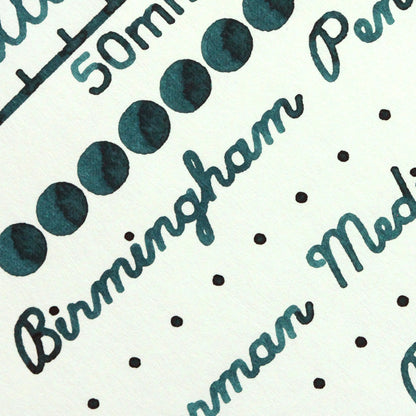 50mm
Birmingham Pen
Medi
rman